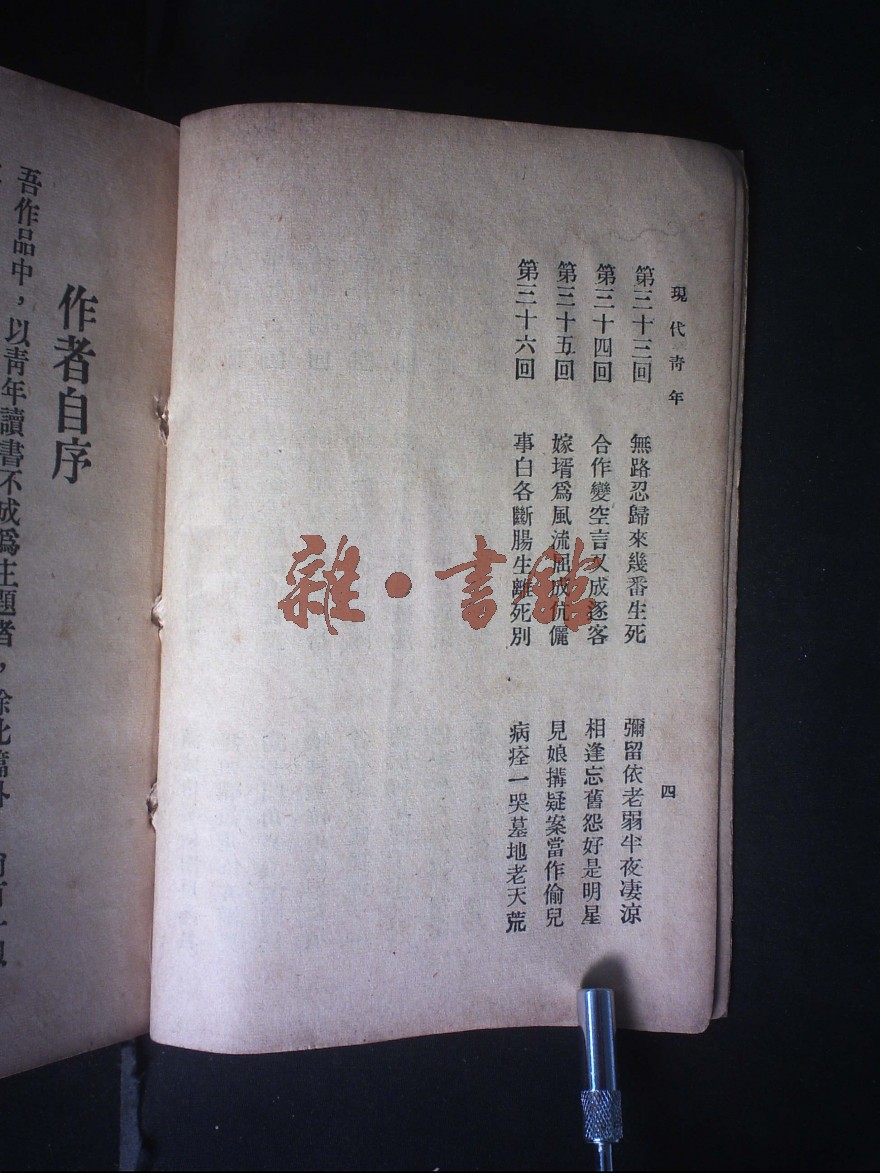 現代青年
四
第三十三回　無路忍歸來幾番生死　彌留依老弱半夜凄涼
第三十四回　合作變空言又成逐客　相逢忘舊怨好是明星
第三十五回　嫁壻爲風流屈成伉儷　見娘搆疑案當作偷兒
第三十六回　事白各斷腸生離死別　病痊一哭墓地老天荒
雜·書館
作者自序
吾作品中，以靑年讀書不成爲主題者，除此篇外